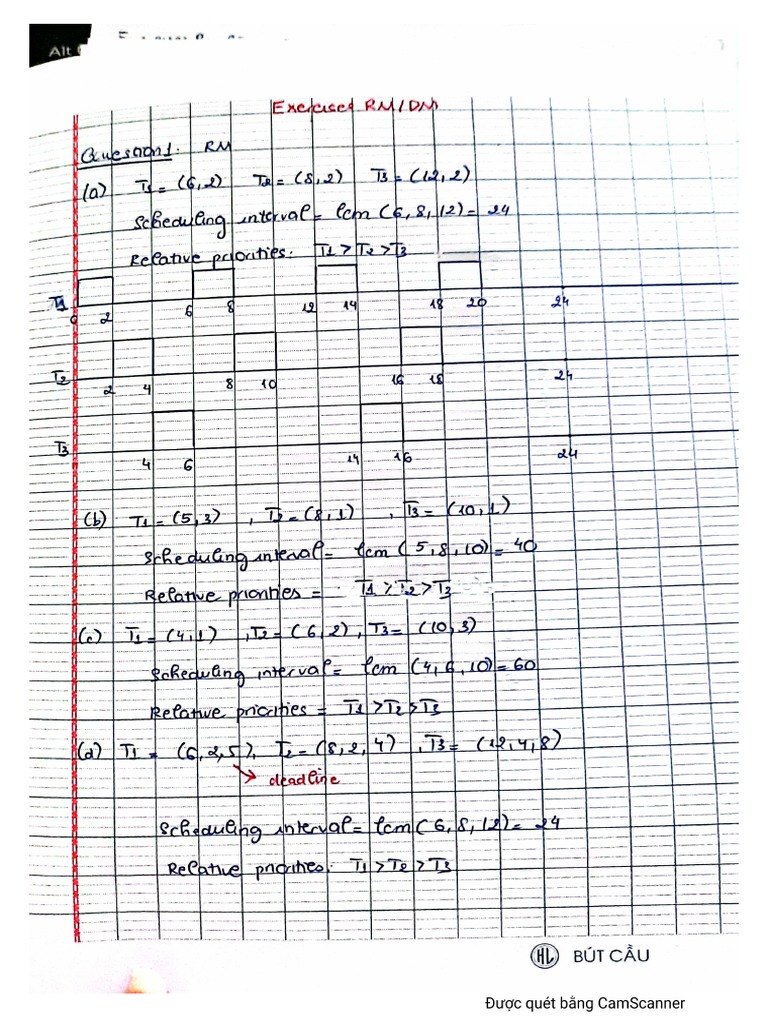 Alt
Exercises RM/DM
Question 1: RM
(a) T1 = (6,2) T2 = (8,2) T3 = (12,2)
Scheduling interval = lcm (6,8,12) = 24
Relative priorities: T1 > T2 > T3
T1 0 2 6 8 12 14 18 20 24
T2 2 4 8 10 16 18 24
T3 4 6 14 16 24
(b) T1 = (5,3) , T2 = (8,1) , T3 = (10,1)
Scheduling interval = lcm (5,8,10) = 40
Relative priorities = T1 > T2 > T3
(c) T1 = (4,1) , T2 = (6,2) , T3 = (10,3)
Scheduling interval = lcm (4,6,10) = 60
Relative priorities = T1 > T2 > T3
(d) T1 = (6,2,5), T2 = (8,2,4) , T3 = (12,4,8)
deadline
Scheduling interval = lcm (6,8,12) = 24
Relative priorities: T1 > T2 > T3
HL BÚT CẦU
Được quét bằng CamScanner